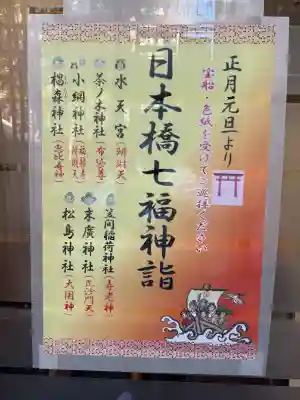 正月元旦より
宝船・色紙を受けてご巡拝ください
日本橋七福神詣
水天宮(弁財天)
茶ノ木神社(布袋尊)
小網神社(福禄寿・弁財天)
椙森神社(恵比寿神)
笠間稲荷神社(寿老神)
末廣神社(毘沙門天)
松島神社(大国神)